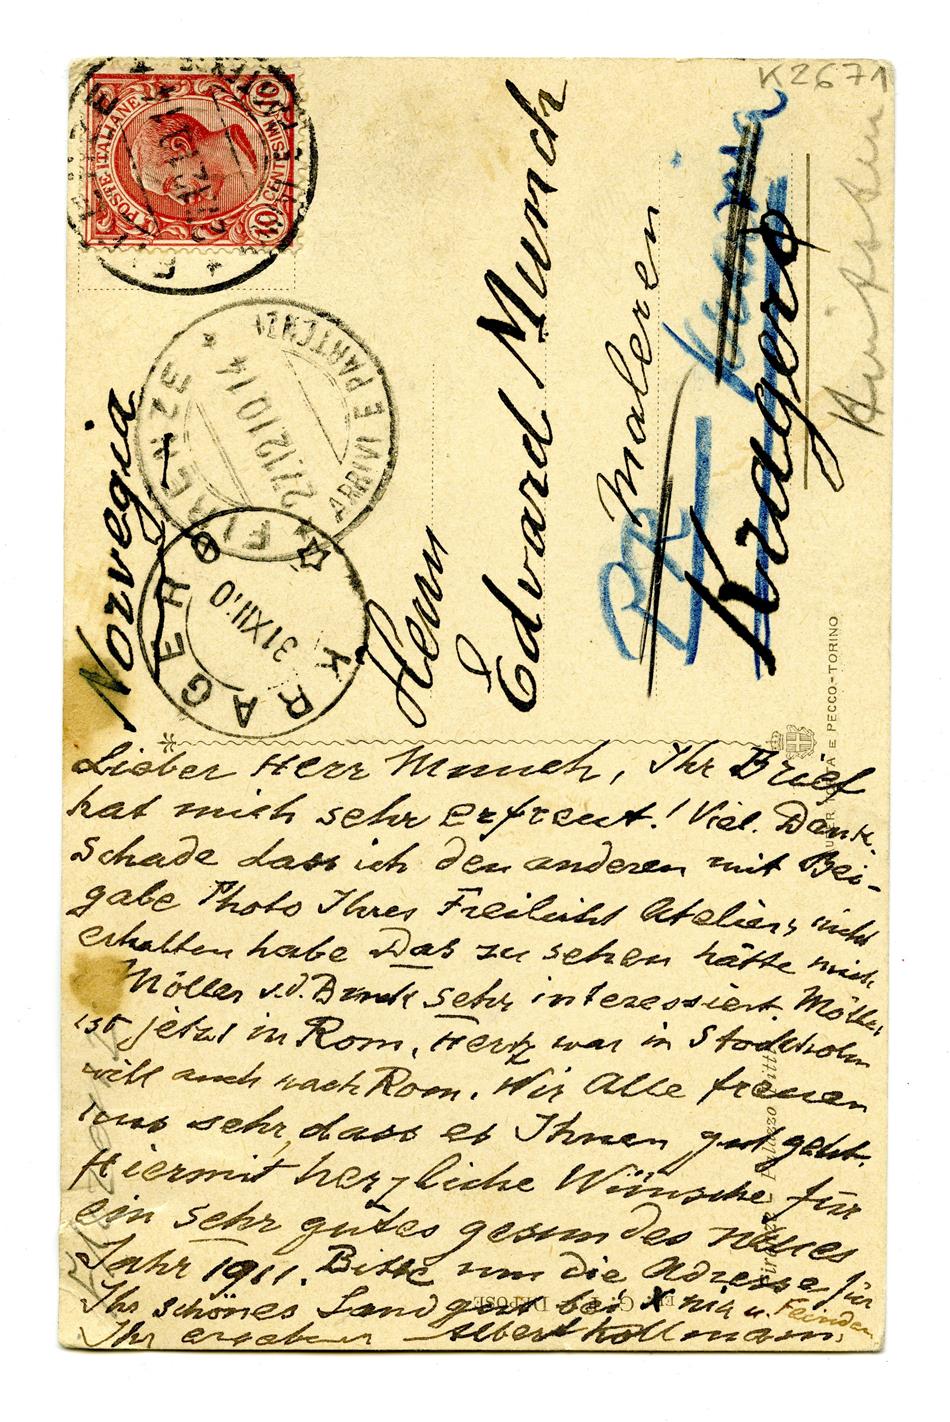 K2671
POSTE·ITALIANE
CENTESIMI 10
FIRENZE
27.12.10.14
ARRIVI E PARTENZE
KRAGERØ
31 XII 10
Norvegia
Herrn
Edvard Munch
Maleren
Kragerø
E PECCO.-TORINO
Lieber Herr Munch, Ihr Brief
hat mich sehr erfreut! Viel. Dank.
Schade dass ich den anderen mit Bei-
gabe Photo Ihres Freilicht Ateliers nicht
erhalten habe Das zu sehen hätte mich,
Möller v.d. Bruck sehr interessiert. Möller
ist jetzt in Rom, Hertz war in Stockholm
will auch nach Rom. Wir Alle freuen
uns sehr, dass es Ihnen gut geht.
Hiermit herzliche Wünsche für
ein sehr gutes gesundes neues
Jahr 1911. Bitte um die Adresse für
Ihr schönes Landgut bei Xnia u. Feinden
Ihr ergebener Albert Kollmann.